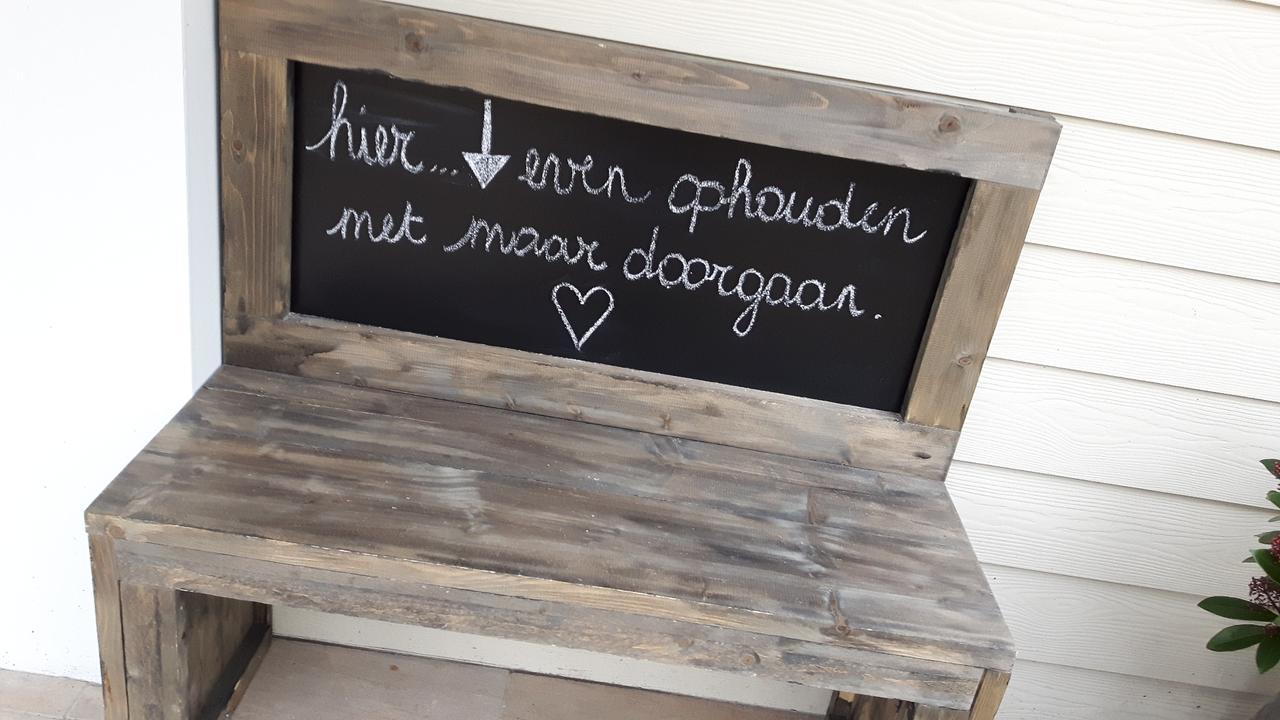 hier... ↓ even ophouden
met maar doorgaan.
♡